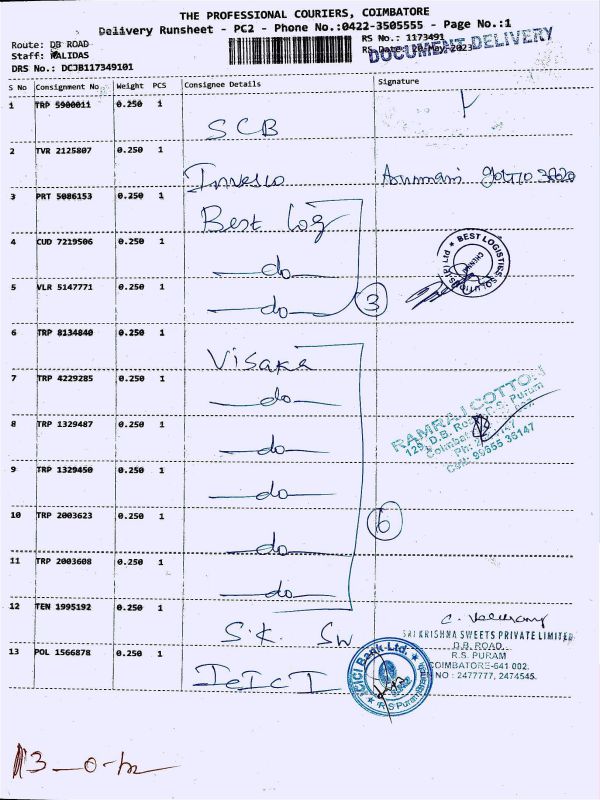 THE PROFESSIONAL COURIERS, COIMBATORE
Delivery Runsheet - PC2 - Phone No.:0422-3505555 - Page No.:1
Route: DB ROAD
Staff: KALIDAS
DRS No.: DCJB117349101
RS No.: 1173491
RS Date: 20-May-2023
DOCUMENT DELIVERY
S No Consignment No Weight PCS Consignee Details Signature
1 TRP 5900011 0.250 1
SCB
2 TVR 2125807 0.250 1
Invesco
3 PRT 5086153 0.250 1
Best Log
4 CUD 7219506 0.250 1
do
BEST LOGISTICS SOLUTIONS (P) Ltd
CHENNAI
5 VLR 5147771 0.250 1
do
3
6 TRP 8134840 0.250 1
Visaka
7 TRP 4229285 0.250 1
do
RAMRAJ COTTON
129, D.B. Road, R.S. Puram
Coimbatore
Ph:
Cell: 99655 36147
8 TRP 1329487 0.250 1
do
9 TRP 1329450 0.250 1
do
10 TRP 2003623 0.250 1
do
6
11 TRP 2003608 0.250 1
do
12 TEN 1995192 0.250 1
S.K. Sw
SRI KRISHNA SWEETS PRIVATE LIMITED
D.B. ROAD,
R.S. PURAM
COIMBATORE-641 002.
NO : 2477777, 2474545.
13 POL 1566878 0.250 1
ICICI
ICICI Bank Ltd.
R S Puram Branch